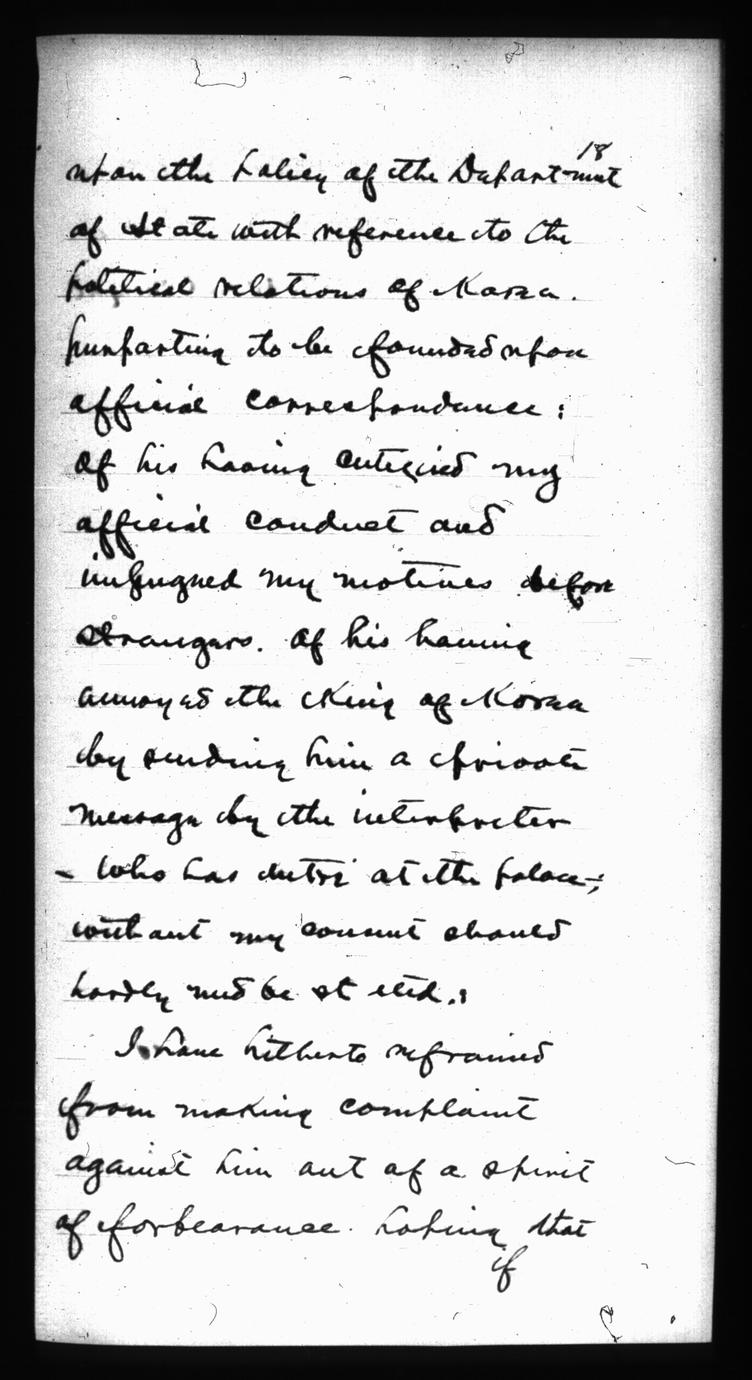 18
upon the policy of the Department
of State with reference to the
political relations of Korea.
purporting to be founded upon
official correspondance:
of his having criticised my
official conduct and
impugned my motives before
strangers. Of his having
annoyed the King of Korea
by sending him a private
message by the interpreter
- who has entré at the palace-;
without my consent should
hardly need be stated.:
I have hitherto refrained
from making complaint
against him out of a spirit
of forbearance. hoping that
if